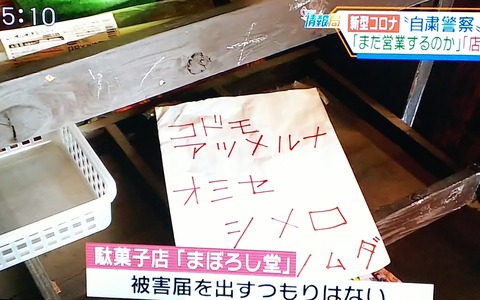 5:10
情報局
新型コロナ
〝自粛警察〟
「また営業するのか」「店
コドモ
アツメルナ
オミセ
シメロ
ノムダ
駄菓子店「まぼろし堂」
被害届を出すつもりはない